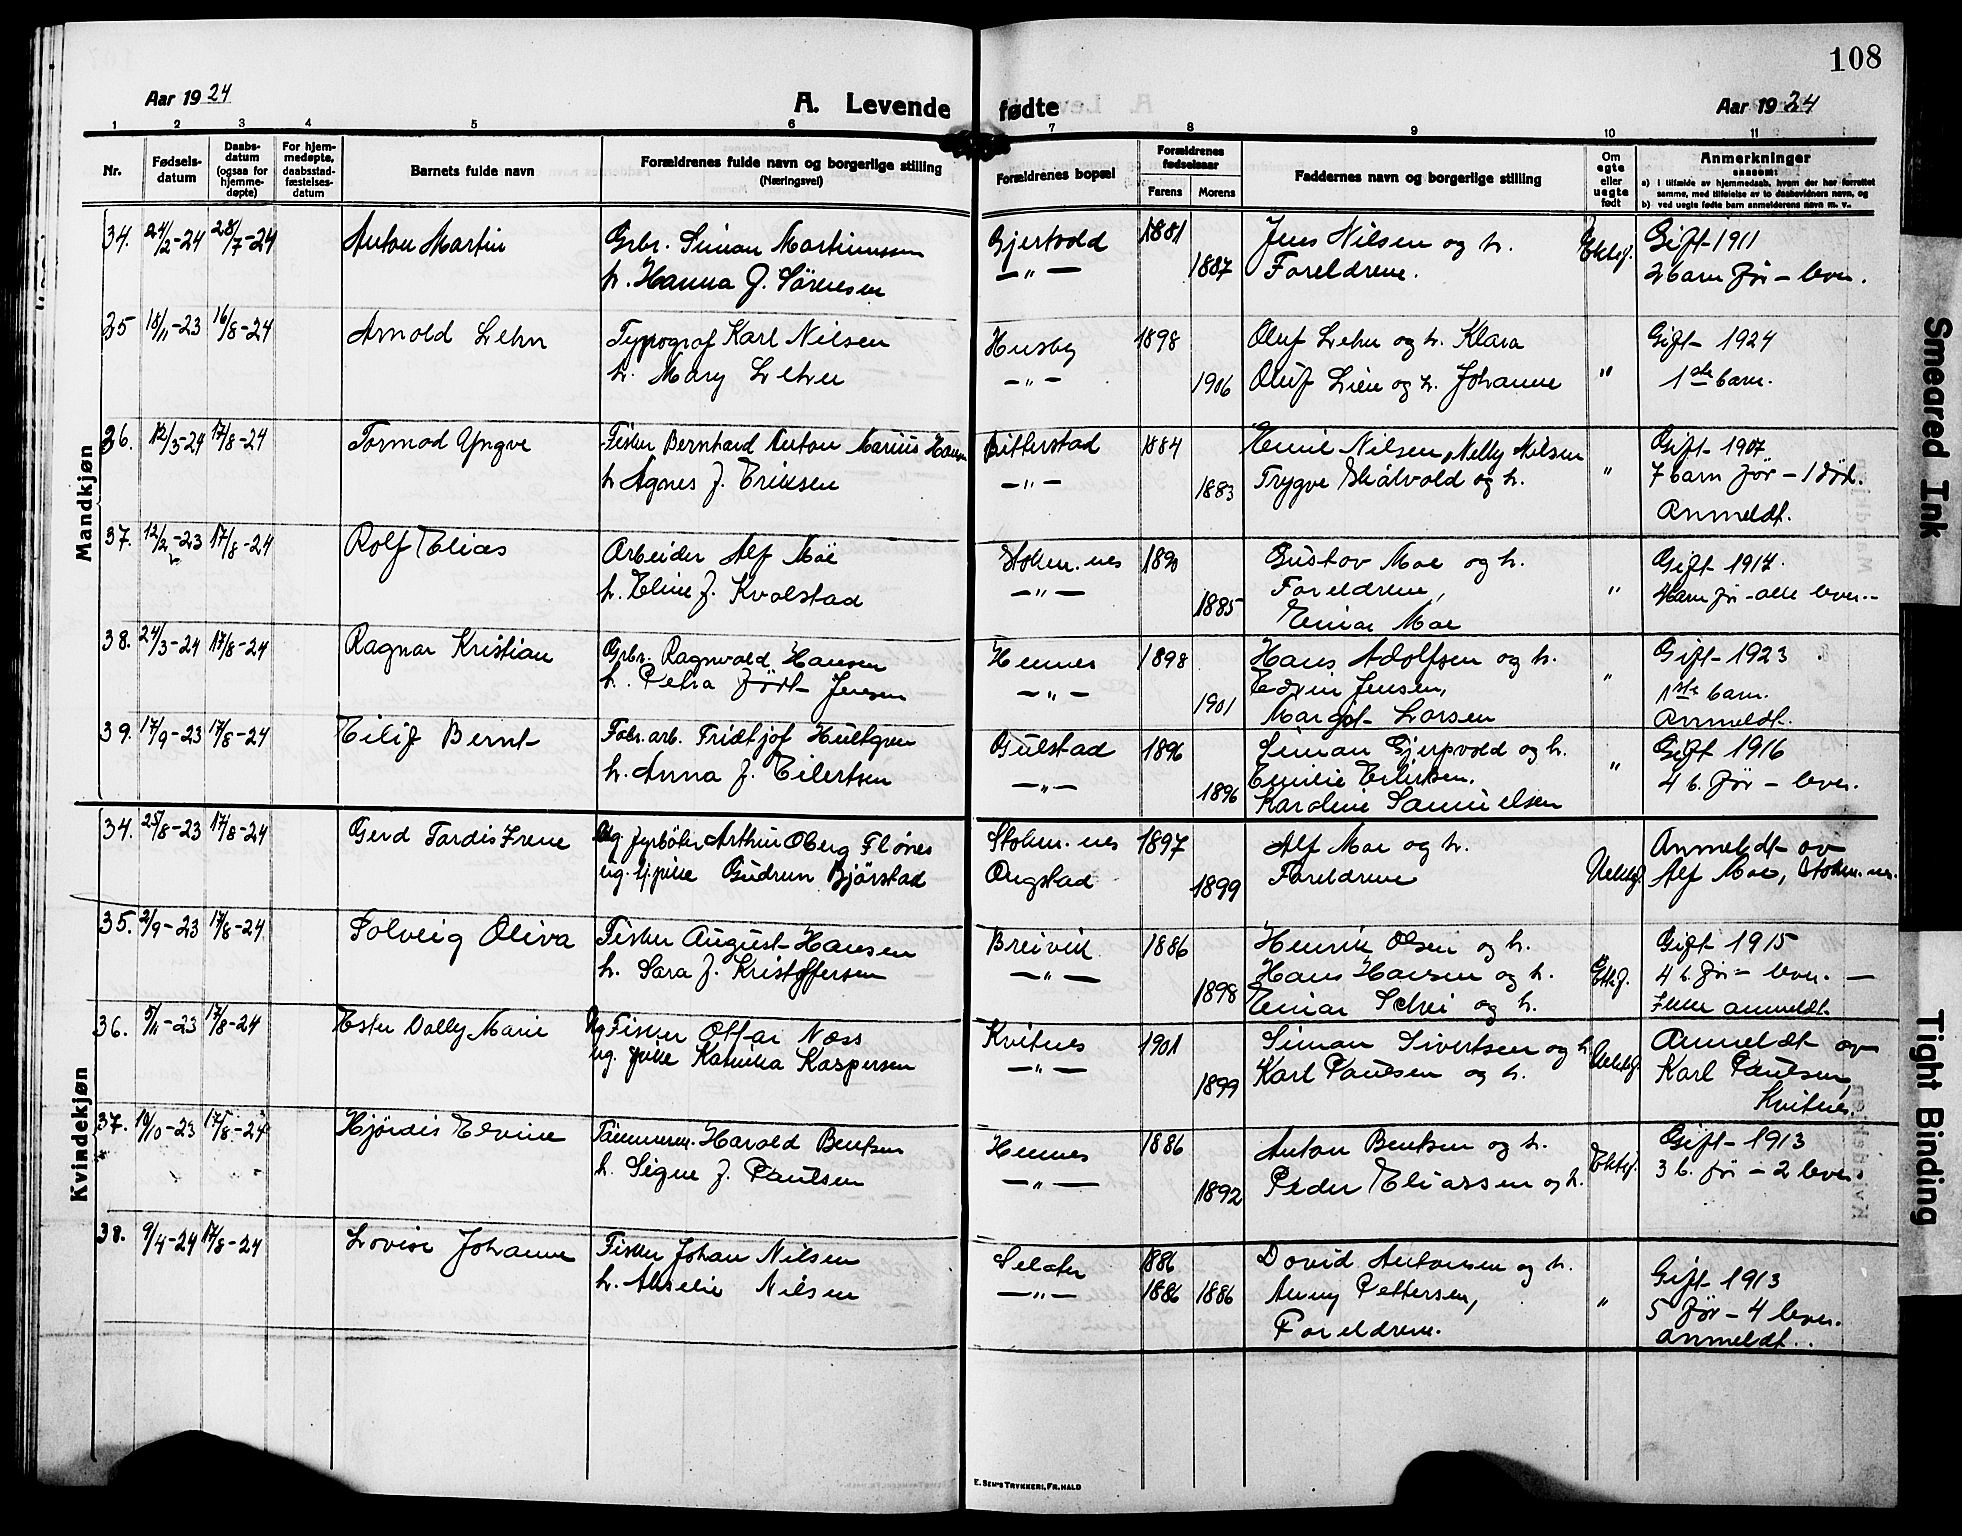 108
Aar 1924
A. Levende fødte
Aar 1924
1 2 3 4 5 6 7 8 9 10 11
Nr.
Fødsels-
datum
Daabs-
datum
(ogsaa for
hjemme-
døpte)
For hjem-
medøpte,
daabsstad-
fæstelses-
datum
Barnets fulde navn
Forældrenes fulde navn og borgerlige stilling
(Næringsvei)
Forældrenes bopæl
Forældrenes
fødselsaar
Farens Morens
Faddernes navn og borgerlige stilling
Om
egte
eller
uegte
født
Anmerkninger
saasom:
a) i tilfælde av hjemmedaab, hvem der har forrettet
samme, med tilføielse av to daabsvidners navn, og
b) ved uegte fødte barn anmelderens navn m. v.
Mandkjøn
34. 24/2-24 28/7-24 Anton Martin Grbr. Simon Martinussen Gjertvold 1881 Jens Nilsen og h. Ektef. Gift 1911
h. Hanna f. Sørensen —"— 1887 Foreldrene. 2 barn før – lever.
35 18/11-23 16/8-24 Arnold Lehn Typograf Karl Nilsen Husby 1898 Oluf Lehn og h. Klara Gift 1924
h. Mary Lehn —"— 1906 Oluf Lien og h. Johanne " 1ste barn.
36. 12/3-24 17/8-24 Tormod Yngve Fisker Bernhard Anton Marius Hansen Bitterstad 1884 Emil Nilsen, Nelly Nilsen Gift 1907
h Agnes f. Eriksen —"— 1883 Trygve Skålvold og h. " 7 barn før – 1 død.
Anmeldt.
37. 12/2-23 17/8-24 Rolf Elias Arbeider Alf Moe Stokm.nes 1890 Gustav Moe og h. Gift 1917.
h. Eline f. Kvalstad —"— 1885 Foreldrene, " 4 barn før – alle lever.
Einar Moe
38. 24/3-24 17/8-24 Ragnar Kristian Grbr. Ragnvald Hansen Hennes 1898 Hans Adolfsen og h. " Gift 1923
h. Petra født Jensen —"— 1901 Edvin Jensen, 1ste barn.
Margot Larsen Anmeldt.
39. 17/9-23 17/8-24 Eilif Bernt Fabr.arb. Fridtjof Hultgren Gulstad 1896 Simon Gjerpvold og h. Gift 1916
h. Anna f. Eilertsen —"— 1896 Emilie Eilertsen. " 4 b. før – lever.
Karoline Samuelsen
Kvindekjøn
34. 25/8-23 17/8-24 Gerd Tordis Irene Ug fyrbøter Arthur Oberg Flønes Stokm.nes 1897 Alf Moe og h. Uektef. Anmeldt av
ug. tj.pike Gudrun Bjørstad Ongstad 1899 Foreldrene Alf Moe, Stokm.nes.
35. 2/9-23 17/8-24 Solveig Oliva Fisker August Hansen Breivik 1886 Henrik Olsen og h. Ektef. Gift 1915
h. Sara f. Kristoffersen —"— 1898 Hans Hansen og h. 4 b. før – lever. —
Einar Selvi og h. Ikke anmeldt.
36. 5/11-23 17/8-24 Ester Dolly Marie Ug Fisker Ottar Næss Kvitnes 1901 Simon Sivertsen og h. Uektef. Anmeldt av
ug. pike Katinka Kaspersen —"— 1899 Karl Paulsen og h. Karl Paulsen,
Kvitnes.
37. 10/10-23 17/8-24 Hjørdis Elvine Tømmerm. Harald Bentsen Hennes 1886 Anton Bentsen og h. Ektef. Gift 1913
h. Signe f. Paulsen —"— 1892 Peder Eliassen og h. 3 b. før – 2 lever.
38. 9/4-24 17/8-24 Lovise Johanne Fisker Johan Nilsen Selater 1886 David Antonsen og h. Gift 1913
h. Anselie Nilsen —"— 1886 1886 Anny Pettersen, " 5 før – 4 lever.
Foreldrene. anmeldt.
E. SEM'S TRYKKERI, FR.HALD
Smeared Ink
Tight Binding